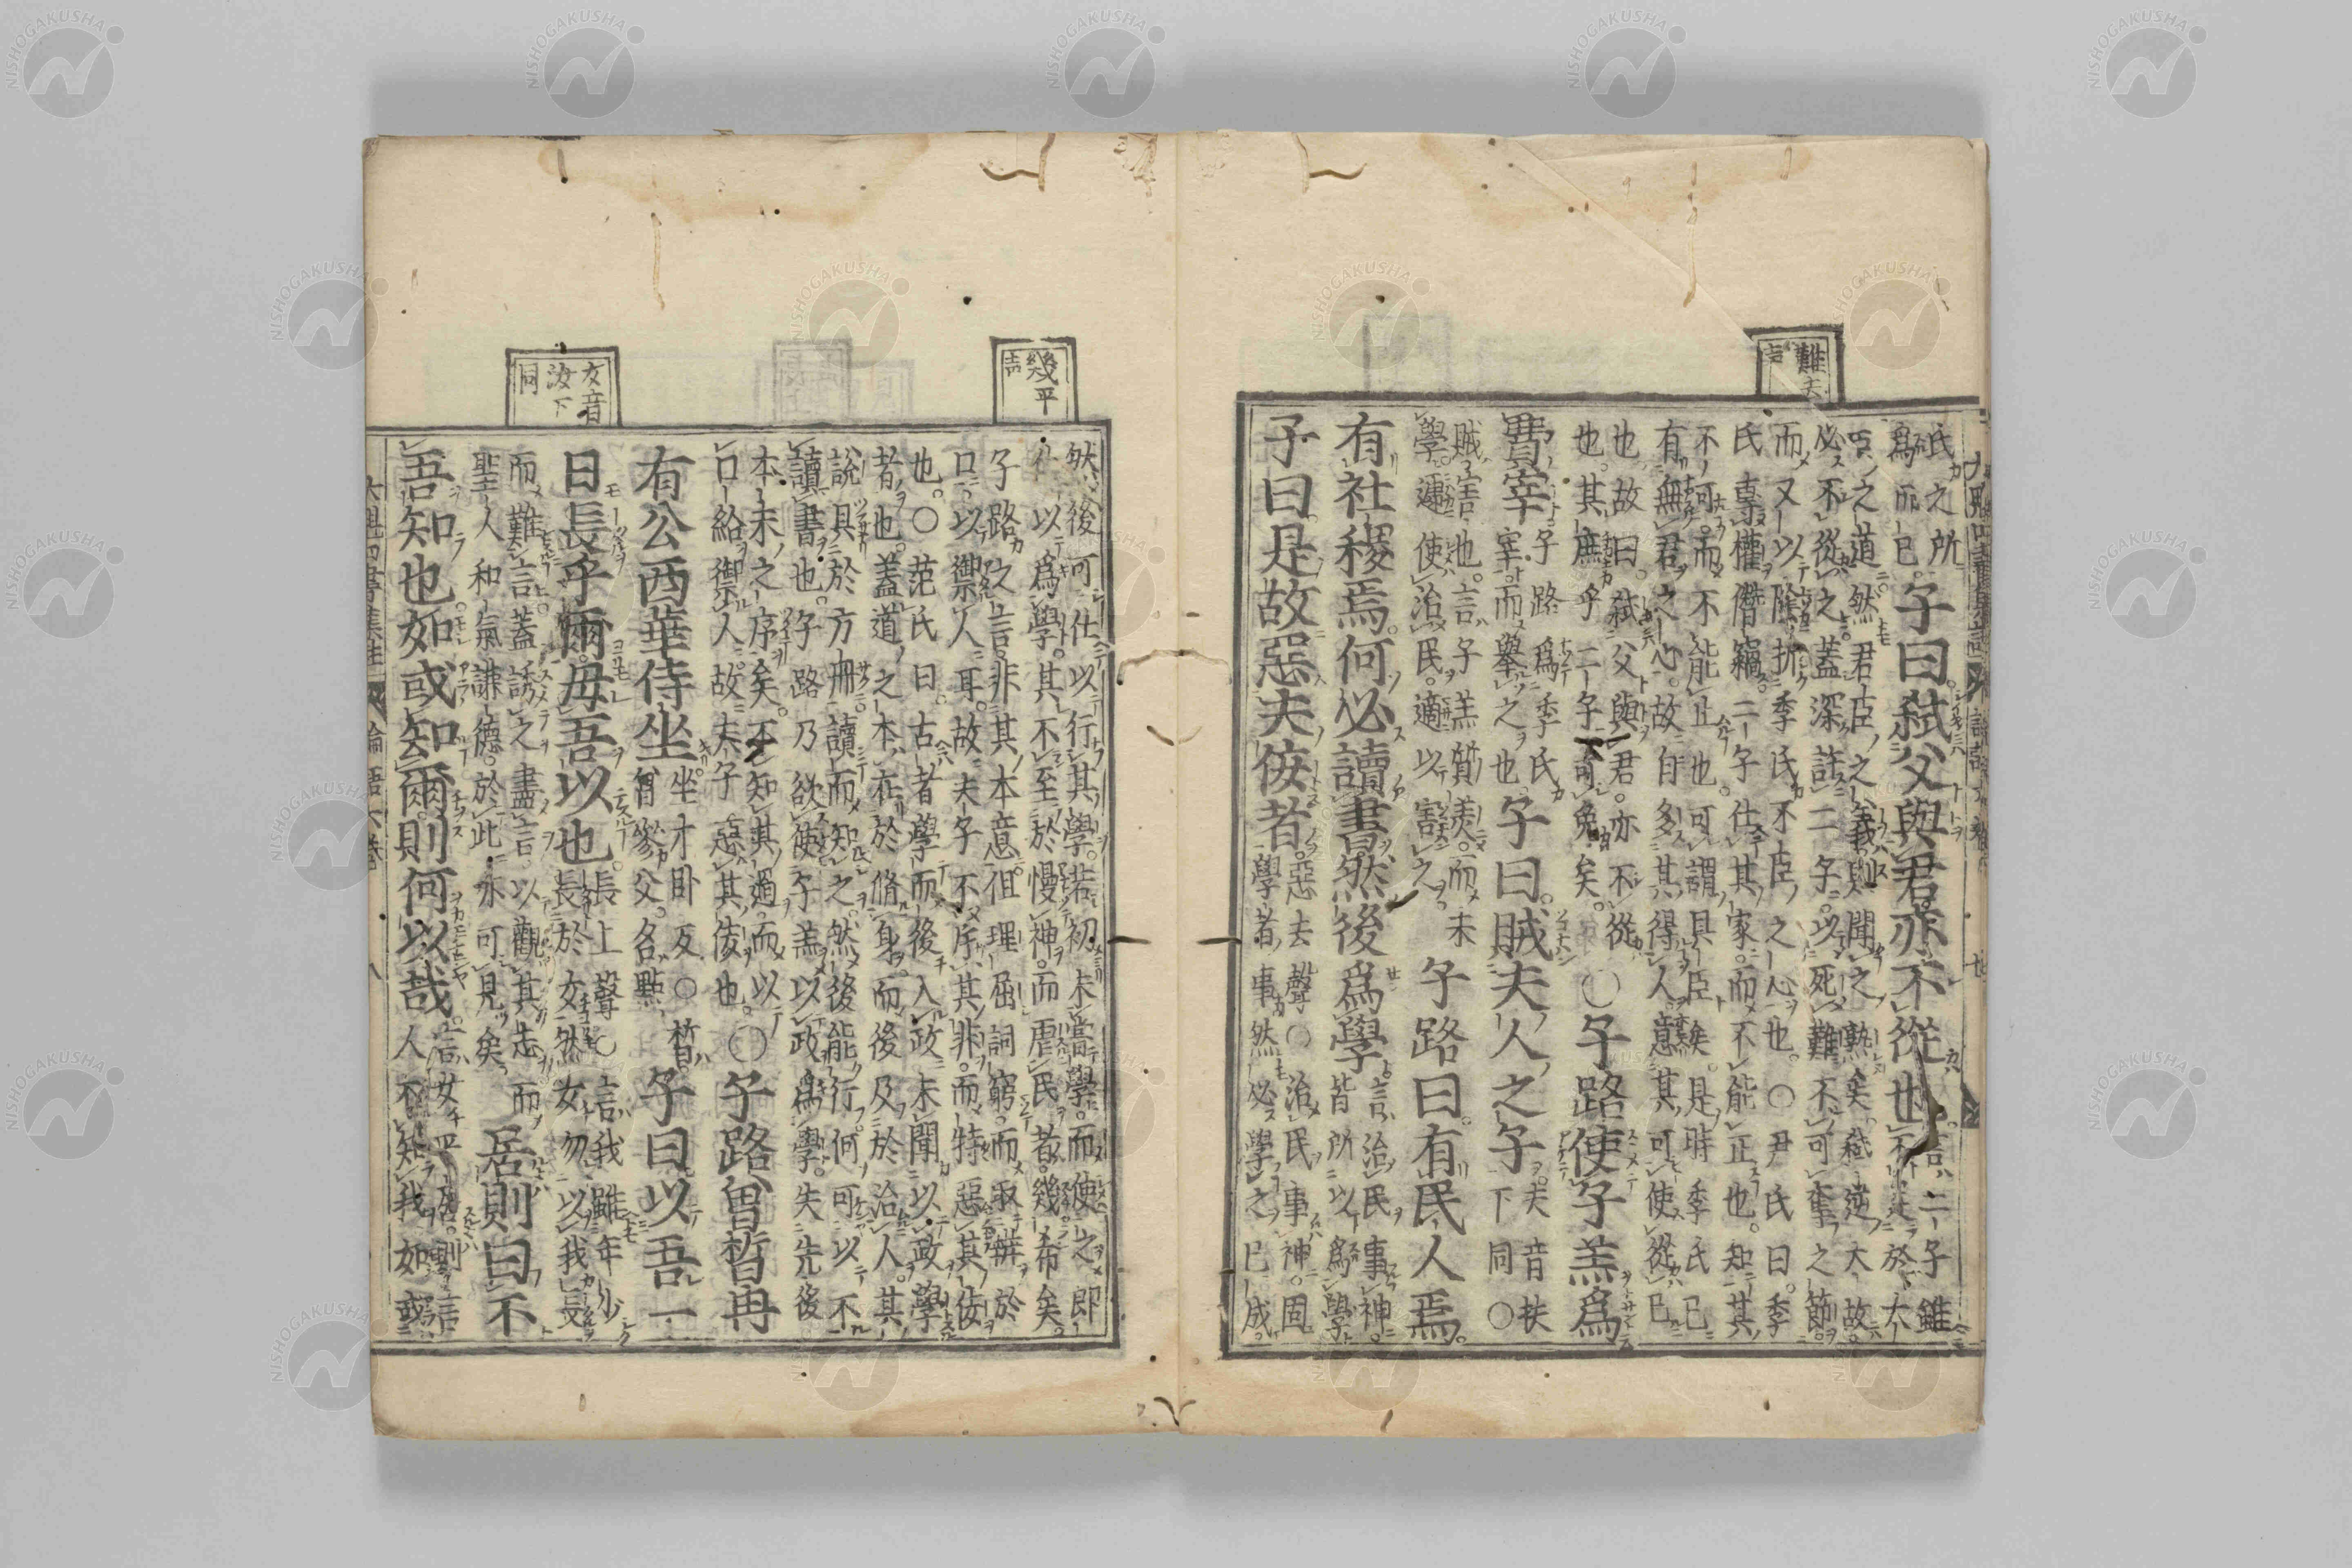 難去
声
氏之所
爲而已。子曰。弑父與君。亦不從也。言二子雖
不足於大
臣之道。然君臣之義。則聞之熟矣。弑逆大故。
必不從之。蓋深許二子。以死難不可奪之節。
而又以陰折季氏不臣之心也。○尹氏曰。季
氏專權僭竊。二子仕其家。而不能正也。知其
不可。而不能止也。可謂具臣矣。是時季氏已
有無君之心。故自多其得人。意其可使從己
也。故曰。弑父與君。亦不從
也。其庶乎二子可免矣。○子路使子羔爲
費宰子路爲季氏
宰。而擧之也。子曰。賊夫人之子。夫音扶
下同○
賊害也。言子羔質美。而未
學。遽使治民。適以害之。子路曰。有民人焉。
有社稷焉。何必讀書。然後爲學。言治民事神。
皆所以爲學
子曰。是故惡夫佞者。惡去聲○治民事神。固
學者事。然必學之已成。
幾平
声
然後可仕以行其學。若初未嘗學。而使之即
仕以爲學。其不至於慢神。而虐民者。幾希矣。
子路之言。非其本意。但理屈詞窮。而取辨於
口。以禦人耳。故夫子不斥其非。而特惡其佞
也。○范氏曰。古者學而後入政。未聞以政學
者也。蓋道之本。在於脩身。而後及於治人。其
說具於方冊。讀而知之。然後能行。何可以不
讀書也。子路乃欲使子羔以政爲學。失先後
本末之序矣。不知其過。而以
口給禦人。故夫子惡其佞也。○子路。曾晳冉
有公西華侍坐坐才卧反○晳。
曾參父。名點。子曰。以吾一
日長乎爾。毋吾以也。長上聲○言我雖年少
長於女。然女勿以我長
而難言。蓋誘之盡言。以觀其志。而
聖人和氣謙德。於此亦可見矣。居則曰。不
吾知也。如或知爾。則何以哉。言女平居。則言
人不知我。如或
女音
汝下
同